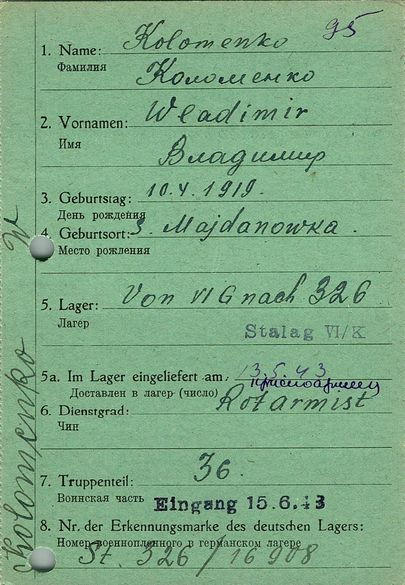 95
1. Name: Kolomenko
Фамилия Коломенко
2. Vornamen: Wladimir
Имя Владимир
3. Geburtstag: 10.4.1919.
День рождения
4. Geburtsort: Majdanowka.
Место рождения
5. Lager: Von VI G nach 326
Лагер
Stalag VI/K
5a. Im Lager eingeliefert am, 13.5.43
Доставлен в лагер (число) красноармеец
6. Dienstgrad: Rotarmist
Чин
7. Truppenteil: 36.
Воинская часть Eingang 15.6.43
8. Nr. der Erkennungsmarke des deutschen Lagers:
Номер военнопленного в германском лагере
St. 326/16908
Kolomenko W